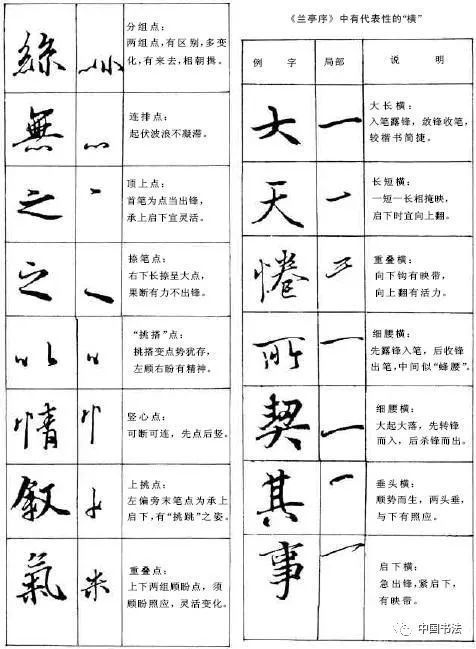 絲
分组点：
两组点，有区别，多变
化，有来去，相朝揖。
無
连排点：
起伏波浪不凝滞。
之
顶上点：
首笔为点当出锋，
承上启下宜灵活。
之
捺笔点：
右下长捺呈大点，
果断有力不出锋。
以
“挑搭”点：
挑搭变点势犹存，
左顾右盼有精神。
情
竖心点：
可断可连，先点后竖。
叙
上挑点：
左偏旁末笔点为承上
启下，有“挑跳”之姿。
氣
重叠点：
上下两组顾盼点，须
顾盼照应，灵活变化。
《兰亭序》中有代表性的“横”
例 字 局部 说 明
大
大长横：
入笔露锋，敛锋收笔，
较楷书简捷。
天
长短横：
一短一长相掩映，
启下时宜向上翻。
惓
重叠横：
向下钩有映带，
向上翻有活力。
所
细腰横：
先露锋入笔，后收锋
出笔，中间似“蜂腰”。
契
细腰横：
大起大落，先转锋
而入，后杀锋而出。
其
垂头横：
顺势而生，两头垂，
与下有照应。
事
启下横：
急出锋，紧启下，
有映带。
中国书法